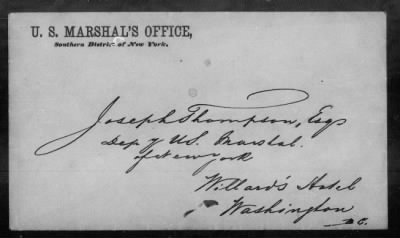 U. S. MARSHAL'S OFFICE,
Southern District of New York.
Joseph Thompson, Esqr
Dep y U.S. Marshal.
of New York
Willard's Hotel
Washington
D.C.